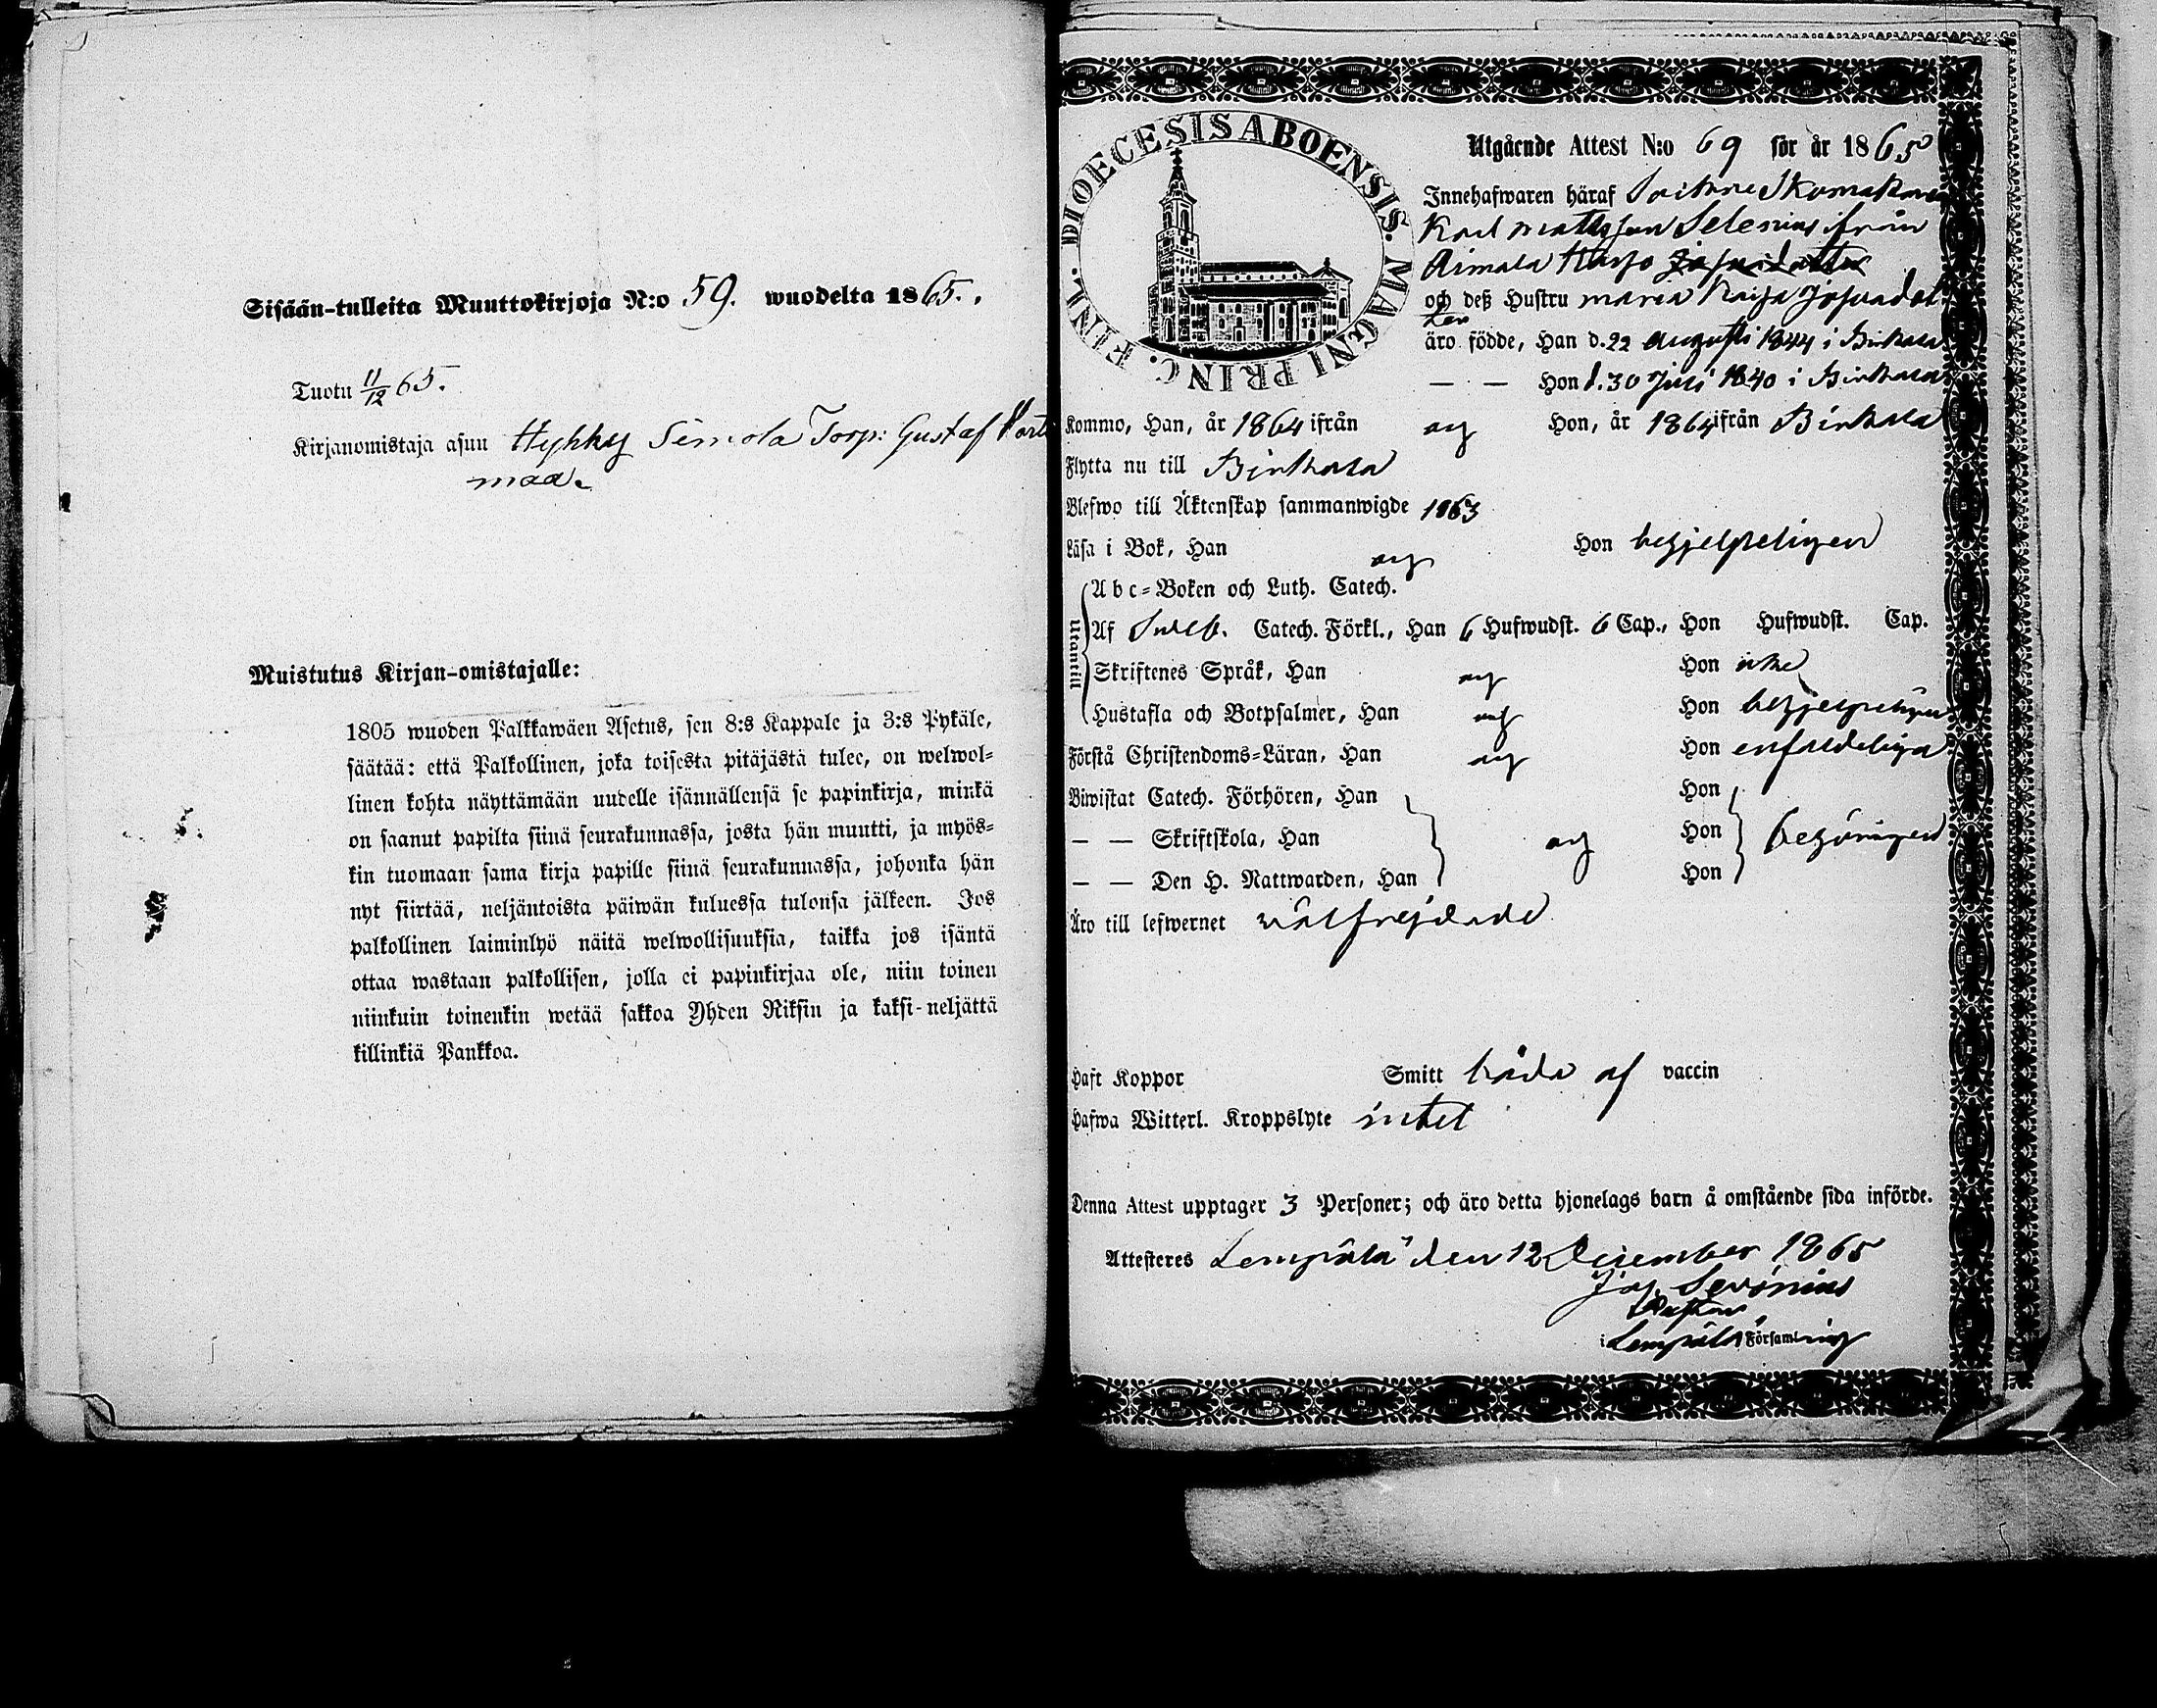 Sisään-tulleita Muuttokirjoja N:o 59. wuodelta 1865.
Tuotu 11/12 65.
Kirjanomistaja asuu Hyhky Simola Torp: Gustaf
maa.
Muistutus Kirjan-omistajalle:
1805 wuoden Palkkawäen Asetus, sen 8:s Kappale ja 3:s Pykäle,
säätää: että Palkollinen, joka toisesta pitäjästä tulee, on welwol-
linen kohta näyttämään uudelle isännällensä se papinkirja, minkä
on saanut papilta siinä seurakunnassa, josta hän muutti, ja myös-
kin tuomaan sama kirja papille siinä seurakunnassa, johonka hän
nyt siirtää, neljäntoista päiwän kuluessa tulonsa jälkeen. Jos
palkollinen laiminlyö näitä welwollisuuksia, taikka jos isäntä
ottaa wastaan palkollisen, jolla ei papinkirjaa ole, niin toinen
niinkuin toinenkin wetää sakkoa Yhden Riksin ja kaksi-neljättä
killinkiä Pankkoa.
DIOECESIS ABOENSIS. MAGNI PRINC. FINL.
Utgående Attest N:o 69 för år 1865
Innehafwaren häraf Sockne Skomakaren
Karl Mattsson Selenius ifrån
Aimala
och deß Hustru Maria Kaisa Josuadot
ter
äro födde, Han d. 22 Augusti 1844 i Birkala
— — Hon d. 30 Juli 1840 i Birkala
Kommo, Han, år 1864 ifrån och Hon, år 1864 ifrån Birkala
Flytta nu till Birkala
Blefwo till Äktenskap sammanwigde 1863
Läsa i Bok, Han och Hon begjelpeligen
Utantill
A b c-Boken och Luth. Catech.
Af Sweb. Catech. Förkl., Han 6 Hufwudst. 6 Cap., Hon Hufwudst. Cap.
Skriftenes Språk, Han och Hon icke
Hustafla och Botpsalmer, Han och Hon begjelpeligen
Förstå Christendoms-Läran, Han och Hon enfaldeliga
Biwistat Catech. Förhören, Han Hon
— — Skriftskola, Han och Hon
— — Den H. Nattwarden, Han Hon
Äro till lefwernet välfrejdade
Haft Koppor Smitt båda af vaccin
Hafwa Witterl. Kroppslyte intet
Denna Attest upptager 3 Personer; och äro detta hjonelags barn å omstående sida införde.
Attesteres Lempäla den 12 December 1865
Jos. Sevonius
Pastor
i Lempäla Församling